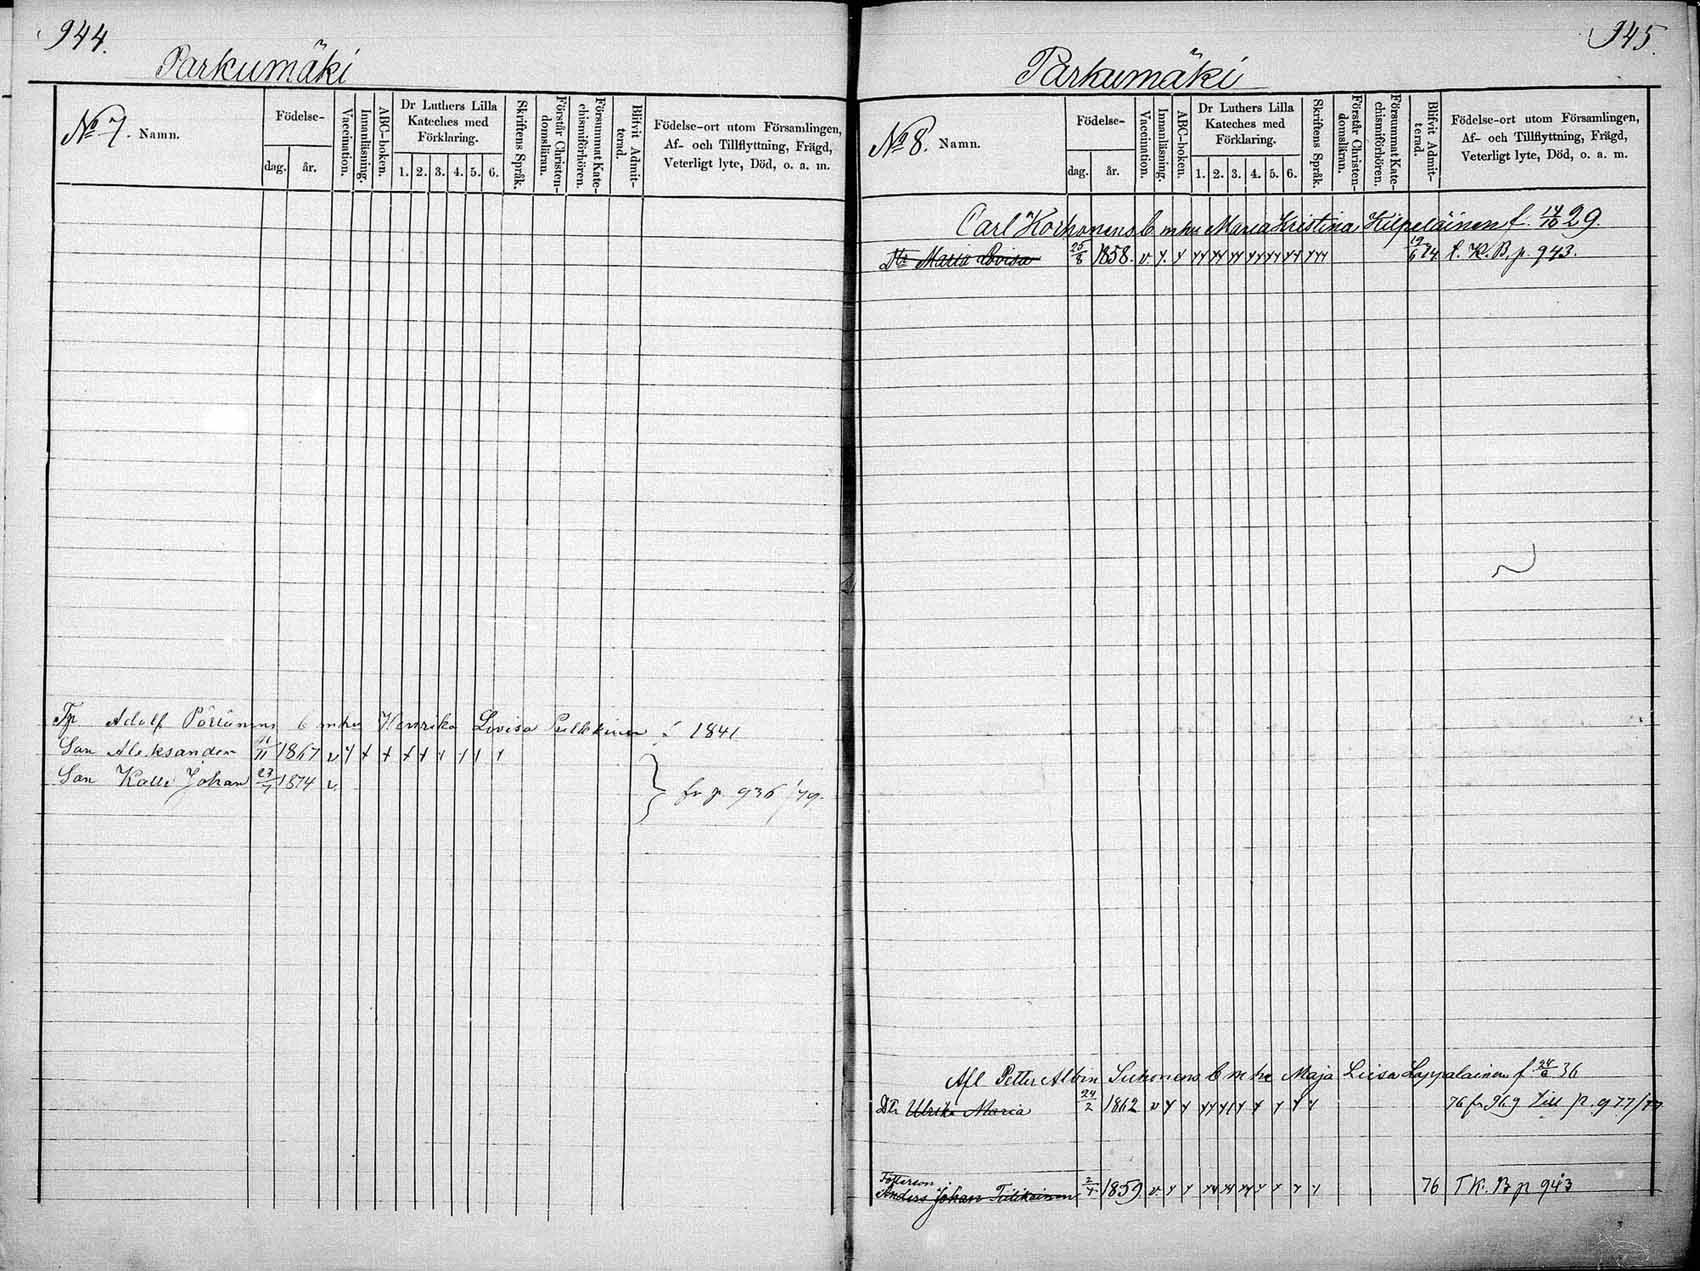 944.
Parkumäki
No 7. Namn.
Födelse-
dag. år.
Vaccination.
Innanläsning.
ABC-boken.
Dr Luthers Lilla
Kateches med
Förklaring.
1. 2. 3. 4. 5. 6.
Skriftens Språk.
Förstår Christen-
domsläran.
Försummat Kate-
chismiförhören.
Blifvit Admit-
terad.
Födelse-ort utom Församlingen,
Af- och Tillflyttning, Frägd,
Veterligt lyte, Död, o. a. m.
Adolf mhu Henrika Lovisa f 1841
Son Aleksander 11/11 1867 v
Son Kalle Johan 23/7 1874 v
} fr p. 936 /79.
945.
Parkumäki
No 8. Namn.
Födelse-
dag. år.
Vaccination.
Innanläsning.
ABC-boken.
Dr Luthers Lilla
Kateches med
Förklaring.
1. 2. 3. 4. 5. 6.
Skriftens Språk.
Förstår Christen-
domsläran.
Försummat Kate-
chismiförhören.
Blifvit Admit-
terad.
Födelse-ort utom Församlingen,
Af- och Tillflyttning, Frägd,
Veterligt lyte, Död, o. a. m.
Carl Korhonens b m hu Maria Kristina Kilpeläinen f. 29.
Dtr Maria Lovisa 25/8 1858. v. 74 K. B. p. 943.
Afl Petter Albin Suhonens b m hu Maja Liisa Lappalainen f. 24/6 36
Dtr Ulrika Maria 24/2 1862 v 76 fr 969 till p. 977/77
Fosterson
Anders Johan Tiilikainen 1859 v. 76 T K. B p 943